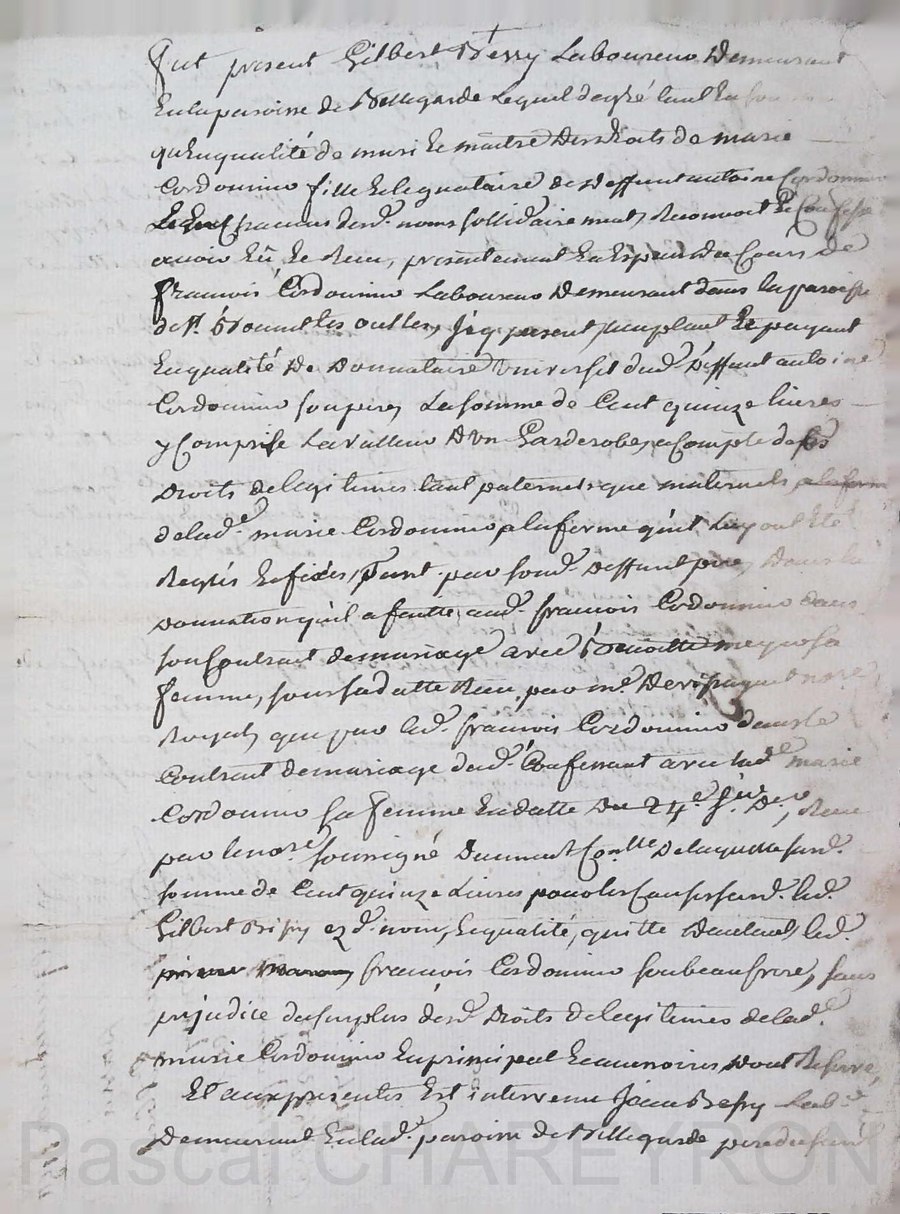 fut present Gilbert Bessy Laboureur Demeurant
En la paroisse de Bellegarde Lequel de gré tant En son
qu'En qualité de mari Et maitre Des droits de marie
Cordonnino fille Et legataire de deffunt antoine Cordonnino
Chacuns desd. noms sollidairement, Reconnoit Et Confesse
avoir Eü Et Receu, presentement En Espece du Cours De
francois Cordonnino Laboureur Demeurant dans la paroisse
de St. Bonnet les oulles, Icy present, acceptant Et payant
En qualité De Donnataire Universel dud. Deffunt antoine
Cordonnino son pere, La somme de Cent quinze livres
y Comprise La valleur D'un Garderobe, a Compte de ses
Droits de legitimes tant paternels que maternels,
de lad. marie Cordonnino a la forme qu'il Luy ont Eté
Reglés Et fixés, tant par sond. deffunt pere, Dans la
Donnation qu'il a faitte aud. francois Cordonnino dans
son Contrat de mariage avec Benoitte sa
femme, sous sa datte Receu par me. nore.
Royal, que par led. francois Cordonnino dans le
Contrat de mariage dud. Confessant avec lad. marie
Cordonnino sa femme En datte Du 24.e Receu
par le nore. soussigné Deument Conlle De laquelle susd.
somme de Cent quinze Livres pour les Causes susd. led.
Gilbert Bessy ezd. nom, Et qualité, quitte D'autant led.
francois Cordonnino son beaufrere, sans
prejudice du surplus desd. Droits de legitimes de lad.
marie Cordonnino En principal Et accessoires, Dont Reserve,
Et aux presentes Est intervenu Jean Bessy Lab.r
Demeurant En lad. paroisse de Bellegarde pere dud.
Pascal CHAREYRON